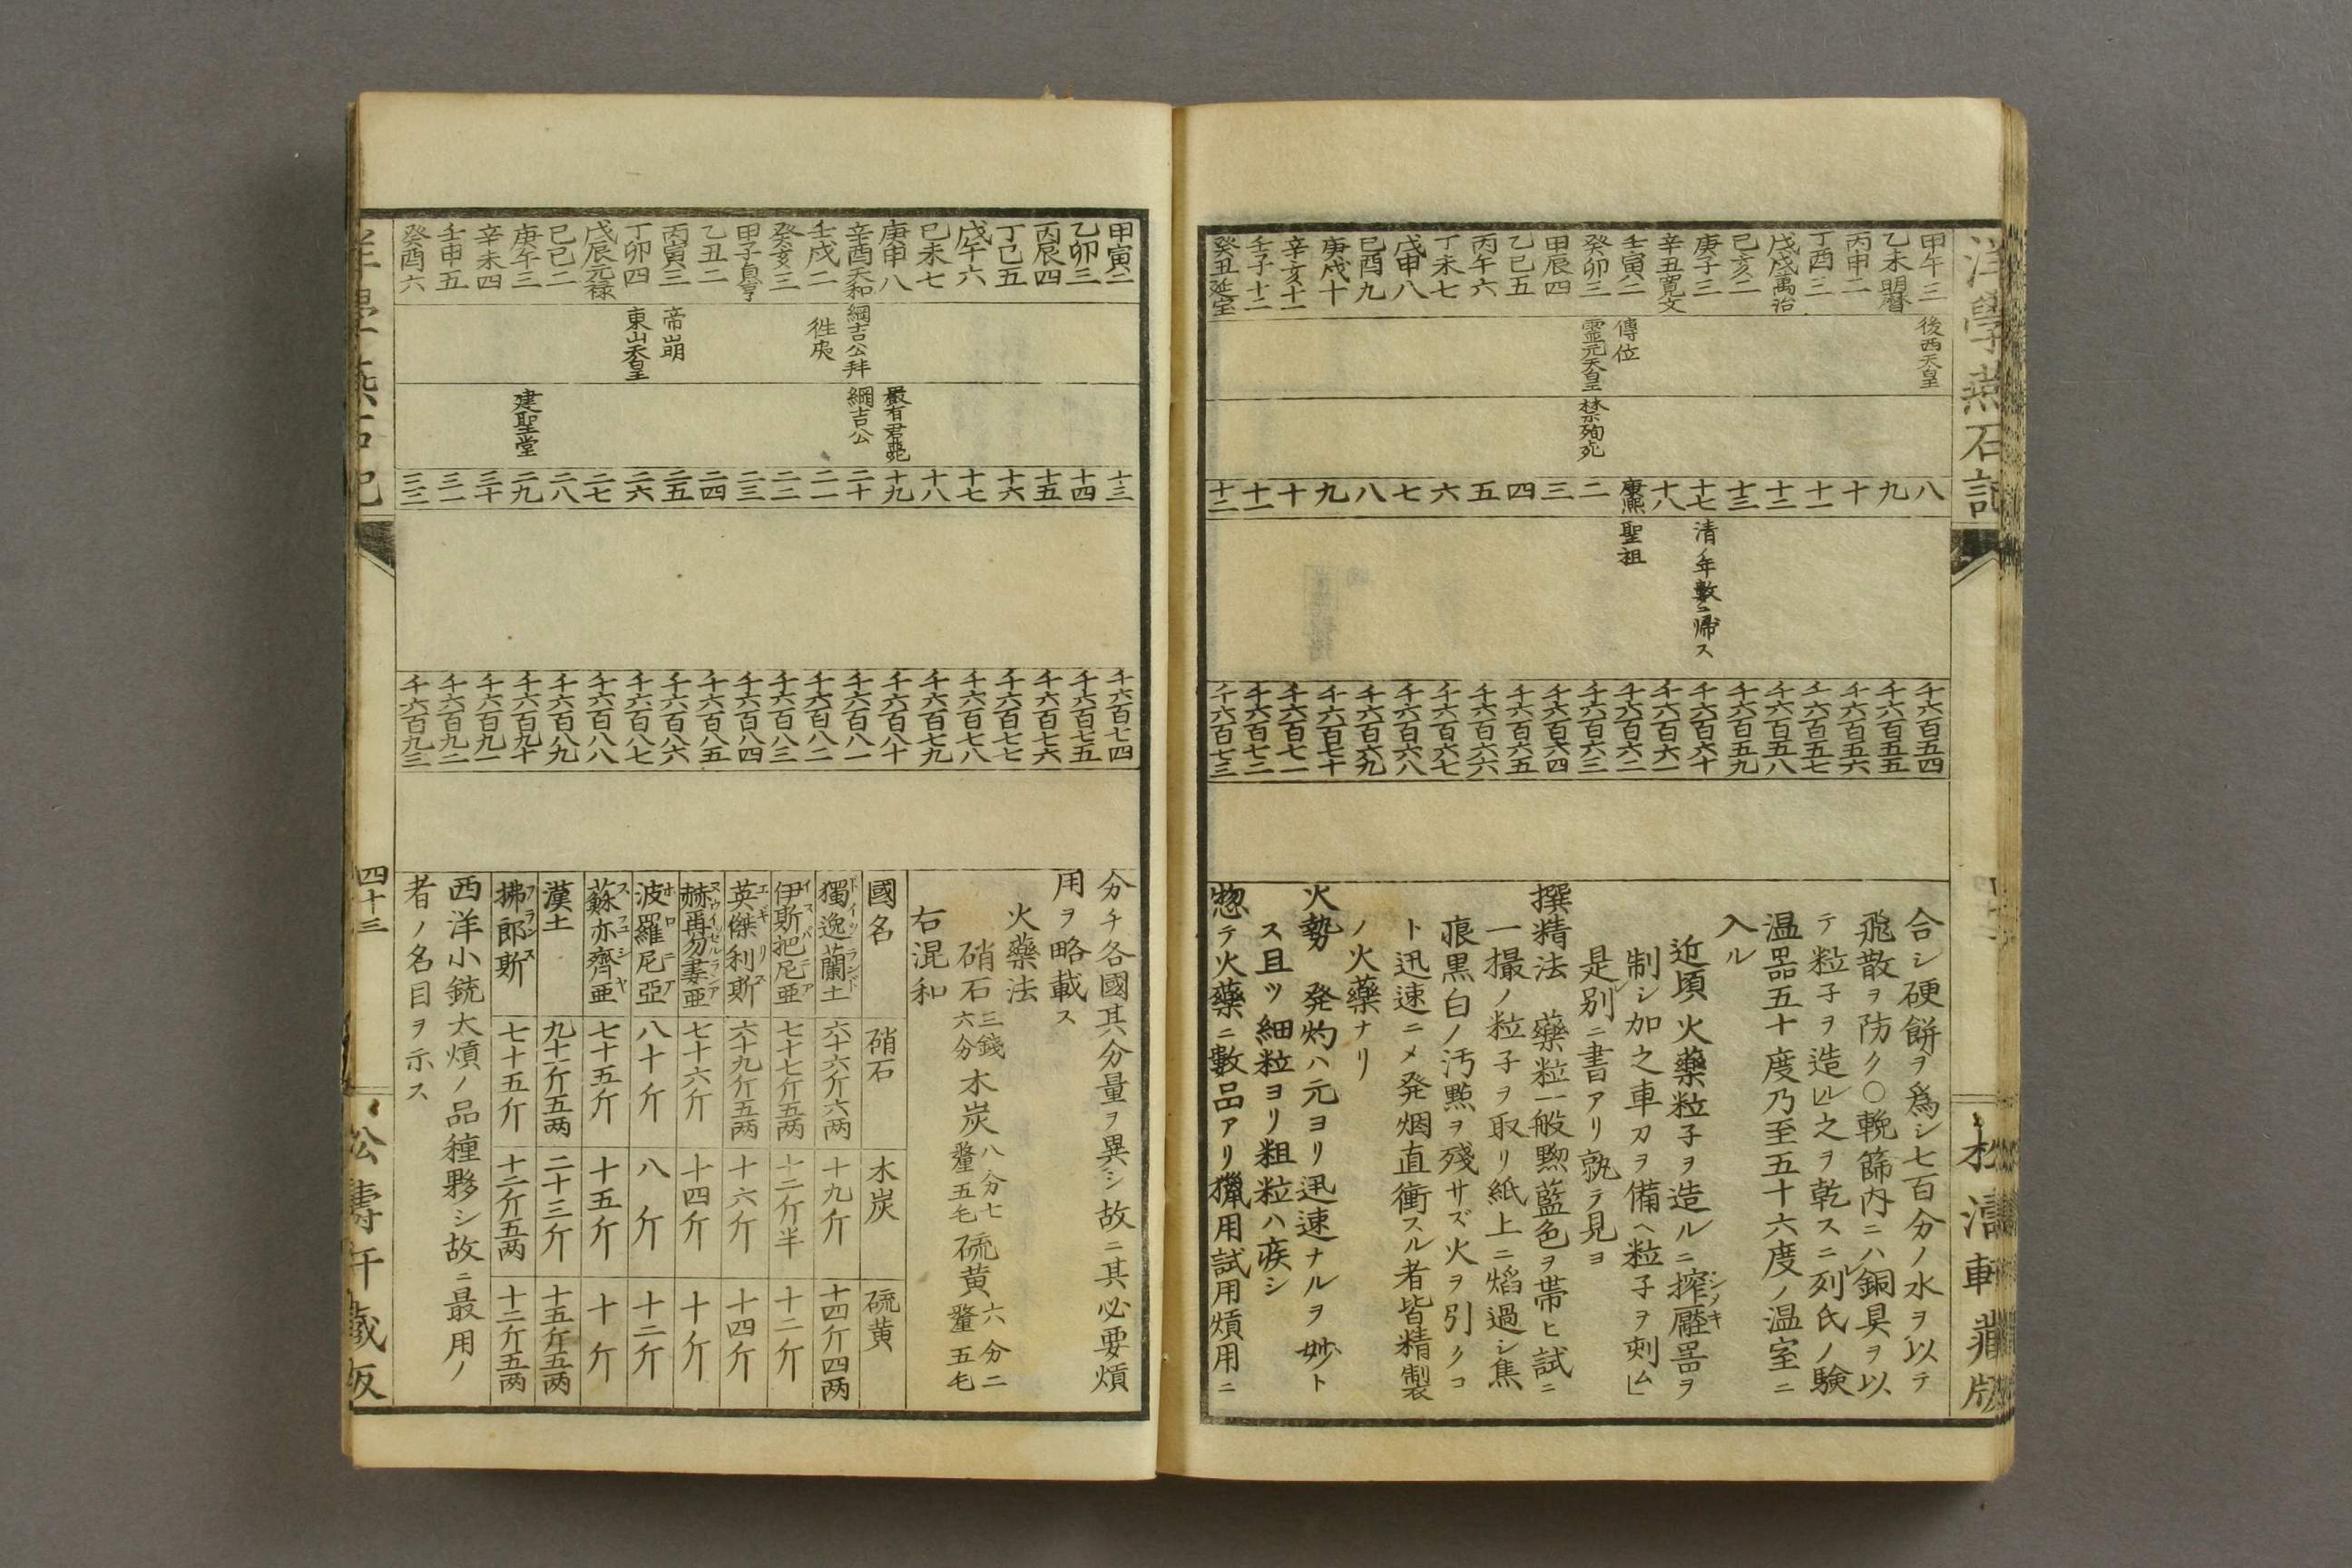 洋學燕石記
松濤軒藏版
甲午三 後西天皇 八 千六百五四
乙未明曆 九 千六百五五
丙申二 十 千六百五六
丁酉三 十一 千六百五七
戊戌萬治 十二 千六百五八
己亥二 十三 千六百五九
庚子三 十七 清ノ年數ニ帰ス 千六百六十
辛丑寛文 十八 千六百六一
壬寅二 傳位 康熙 聖祖 千六百六二
癸卯三 霊元天皇 禁殉死 二 千六百六三
甲辰四 三 千六百六四
乙巳五 四 千六百六五
丙午六 五 千六百六六
丁未七 六 千六百六七
戊申八 七 千六百六八
己酉九 八 千六百六九
庚戌十 九 千六百七十
辛亥十一 十 千六百七一
壬子十二 十一 千六百七二
癸丑延宝 十二 千六百七三
合シ硬餅ヲ爲シ七百分ノ水ヲ以テ
飛散ヲ防ク〇輓篩内ニハ銅具ヲ以
テ粒子ヲ造ル之ヲ乾スニ列氏ノ験
温器五十度乃至五十六度ノ温室ニ
入ル
近頃火藥粒子ヲ造ルニ搾壓器ヲ
シメキ
制シ加之車刀ヲ備ヘ粒子ヲ刺ム
是別ニ書アリ就テ見ヨ
撰精法 藥粒一般黙藍色ヲ帯ヒ試ニ
一撮ノ粒子ヲ取リ紙上ニ焰過シ焦
痕黒白ノ汚點ヲ殘サズ火ヲ引クコ
ト迅速ニメ発烟直衝スル者皆精製
ノ火藥ナリ
火勢 発灼ハ元ヨリ迅速ナルヲ妙ト
ス且ツ細粒ヨリ粗粒ハ疾シ
惣テ火藥ニ數品アリ獵用試用熕用ニ
甲寅二 十三 千六百七四
乙卯三 十四 千六百七五
丙辰四 十五 千六百七六
丁巳五 十六 千六百七七
戊午六 十七 千六百七八
己未七 十八 千六百七九
庚申八 嚴有君薨 十九 千六百八十
辛酉天和 綱吉公拜 綱吉公 二十 千六百八一
壬戌二 二一 千六百八二
癸亥三 二二 千六百八三
甲子貞享 二三 千六百八四
乙丑二 二四 千六百八五
丙寅三 帝崩 二五 千六百八六
丁卯四 東山天皇 二六 千六百八七
戊辰元禄 二七 千六百八八
己巳二 二八 千六百八九
庚午三 建聖堂 二九 千六百九十
辛未四 三十 千六百九一
壬申五 三一 千六百九二
癸酉六 三二 千六百九三
分チ各國其分量ヲ異シ故ニ其必要熕
用ヲ略載ス
火藥法
硝石三錢六分木炭八分七釐五毛硫黄六分二釐五毛
右混和
國名 硝石 木炭 硫黄
獨逸蘭土 ドイツランド 六十六斤六两 十九斤 十四斤四两
伊斯把尼亜 イスパニア 七十七斤五两 十二斤半 十二斤
英傑利斯 エギリス 六十九斤五两 十六斤 十四斤
赫再勿妻亜 七十六斤 十四斤 十斤
波羅尼亞 ホロニア 八十斤 八斤 十二斤
蘇亦齊亜 七十五斤 十五斤 十斤
漢土 九十一斤五两 二十三斤 十五斤五两
拂郎斯 フランス 七十五斤 十二斤五两 十二斤五两
西洋小銃大熕ノ品種夥シ故ニ最用ノ
者ノ名目ヲ示ス
四十三